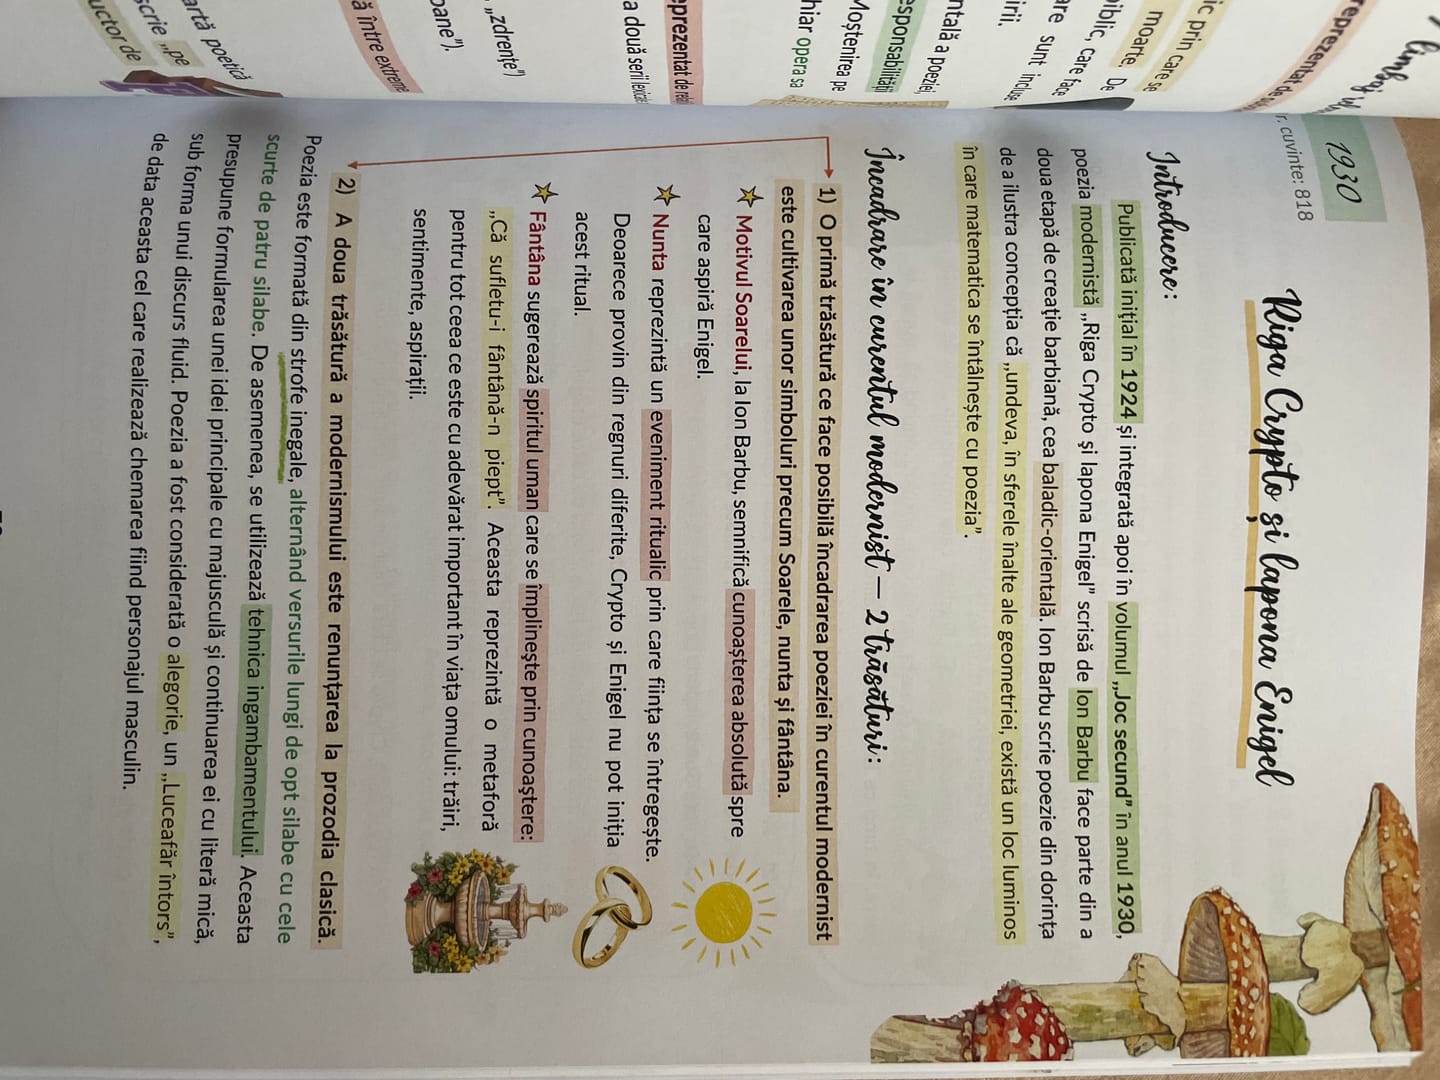 1930
r. cuvinte: 818
Riga Crypto și lapona Enigel
Introducere:
Publicată inițial în 1924 și integrată apoi în volumul „Joc secund” în anul 1930,
poezia modernistă „Riga Crypto și lapona Enigel” scrisă de Ion Barbu face parte din a
doua etapă de creație barbiană, cea baladic-orientală. Ion Barbu scrie poezie din dorința
de a ilustra concepția că „undeva, în sferele înalte ale geometriei, există un loc luminos
în care matematica se întâlnește cu poezia”.
Încadrare în curentul modernist – 2 trăsături:
1) O primă trăsătură ce face posibilă încadrarea poeziei în curentul modernist
este cultivarea unor simboluri precum Soarele, nunta și fântâna.
Motivul Soarelui, la Ion Barbu, semnifică cunoașterea absolută spre
care aspiră Enigel.
Nunta reprezintă un eveniment ritualic prin care ființa se întregește.
Deoarece provin din regnuri diferite, Crypto și Enigel nu pot iniția
acest ritual.
Fântâna sugerează spiritul uman care se împlinește prin cunoaștere:
„Că sufletu-i fântână-n piept”. Aceasta reprezintă o metaforă
pentru tot ceea ce este cu adevărat important în viața omului: trăiri,
sentimente, aspirații.
2) A doua trăsătură a modernismului este renunțarea la prozodia clasică.
Poezia este formată din strofe inegale, alternând versurile lungi de opt silabe cu cele
scurte de patru silabe. De asemenea, se utilizează tehnica ingambamentului. Aceasta
presupune formularea unei idei principale cu majusculă și continuarea ei cu literă mică,
sub forma unui discurs fluid. Poezia a fost considerată o alegorie, un „Luceafăr întors”,
de data aceasta cel care realizează chemarea fiind personajul masculin.
limbaj
reprezentat de
ic prin care se
moarte. De
biblic, care face
are sunt incluse
irii.
ntală a poeziei
esponsabilității
Moștenirea pe
hiar opera sa
eprezentat de
a două serii
„zdrențe”)
oane”).
ă între extreme
artă poetică
scrie „pe
uctor de